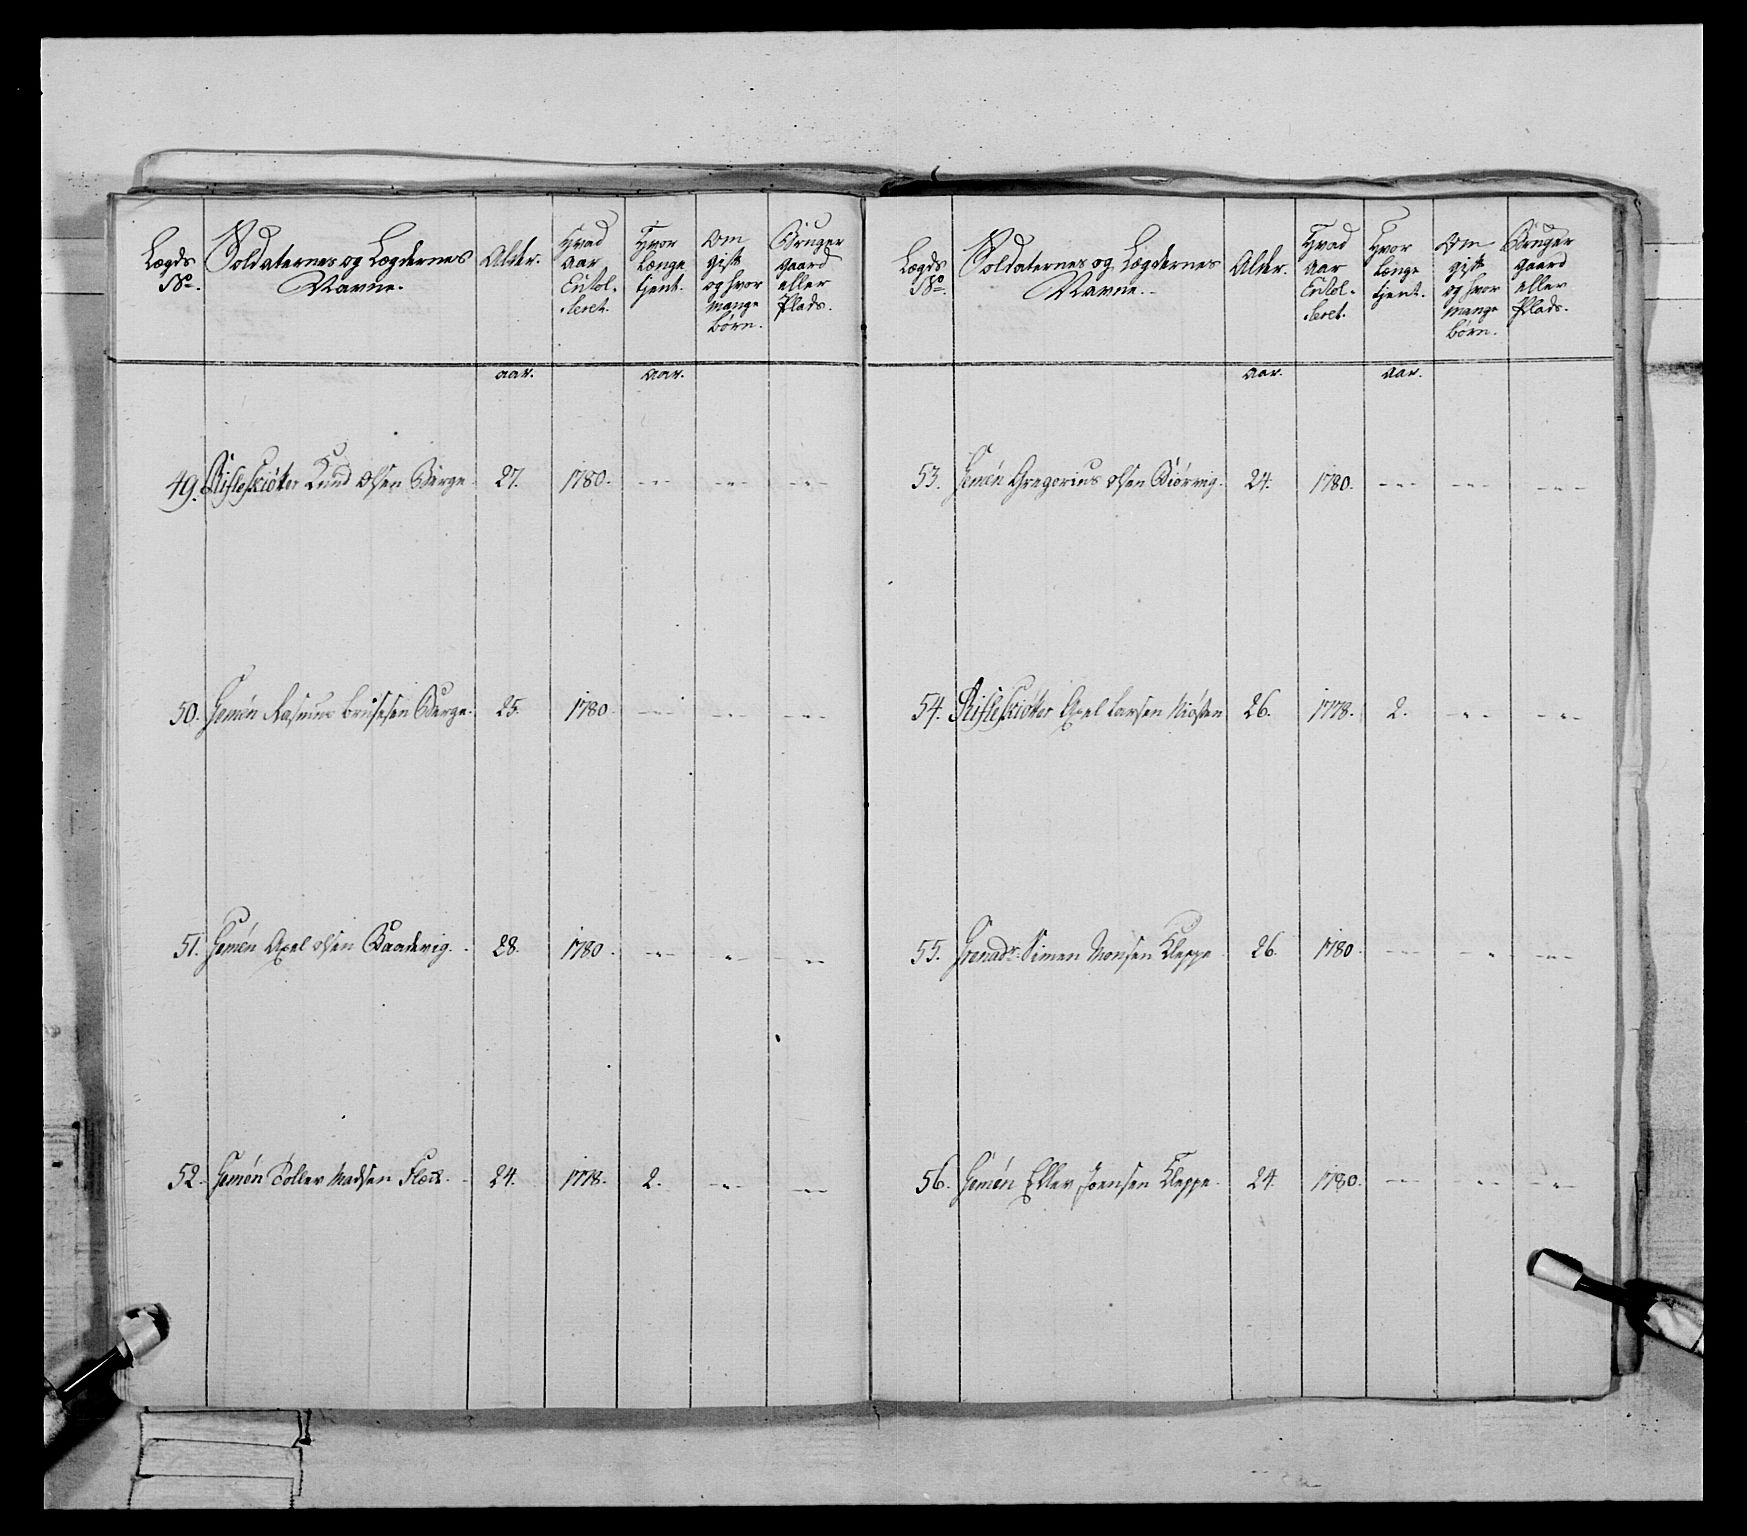 Lægds No.
Soldaternes og Lægdernes Navne.
Alder.
Hvad Aar Enrol-leret.
Hvor længe tjent.
Om gift og hvor mange børn.
Bruger gaard eller Plads.
aar.
aar.
49. Riffelskiøtter Knud Olsen Berge 27. 1780. - - -
50. Gemen Rasmus Brusesen Berge. 25. 1780. - - -
51. Gemen Axel Olsen Baadevig. 28. 1780. - - -
52. Gemen Toller Madsen 24. 1778. 2. - -
Lægds No.
Soldaternes og Lægdernes Navne.
Alder.
Hvad Aar Enrol-leret.
Hvor længe tjent.
Om gift og hvor mange børn.
Bruger gaard eller Plads.
aar.
aar.
53. Gemen Gregorius Olsen Biørvig. 24. 1780. - - -
54. Riffelskiøtter Axel Larsen 26. 1778. 2. - -
55. Grenadr. Simen Monsen Kleppe 26. 1780. - - -
56. Gemen Eller Joensen Kleppe. 24. 1780. - - -